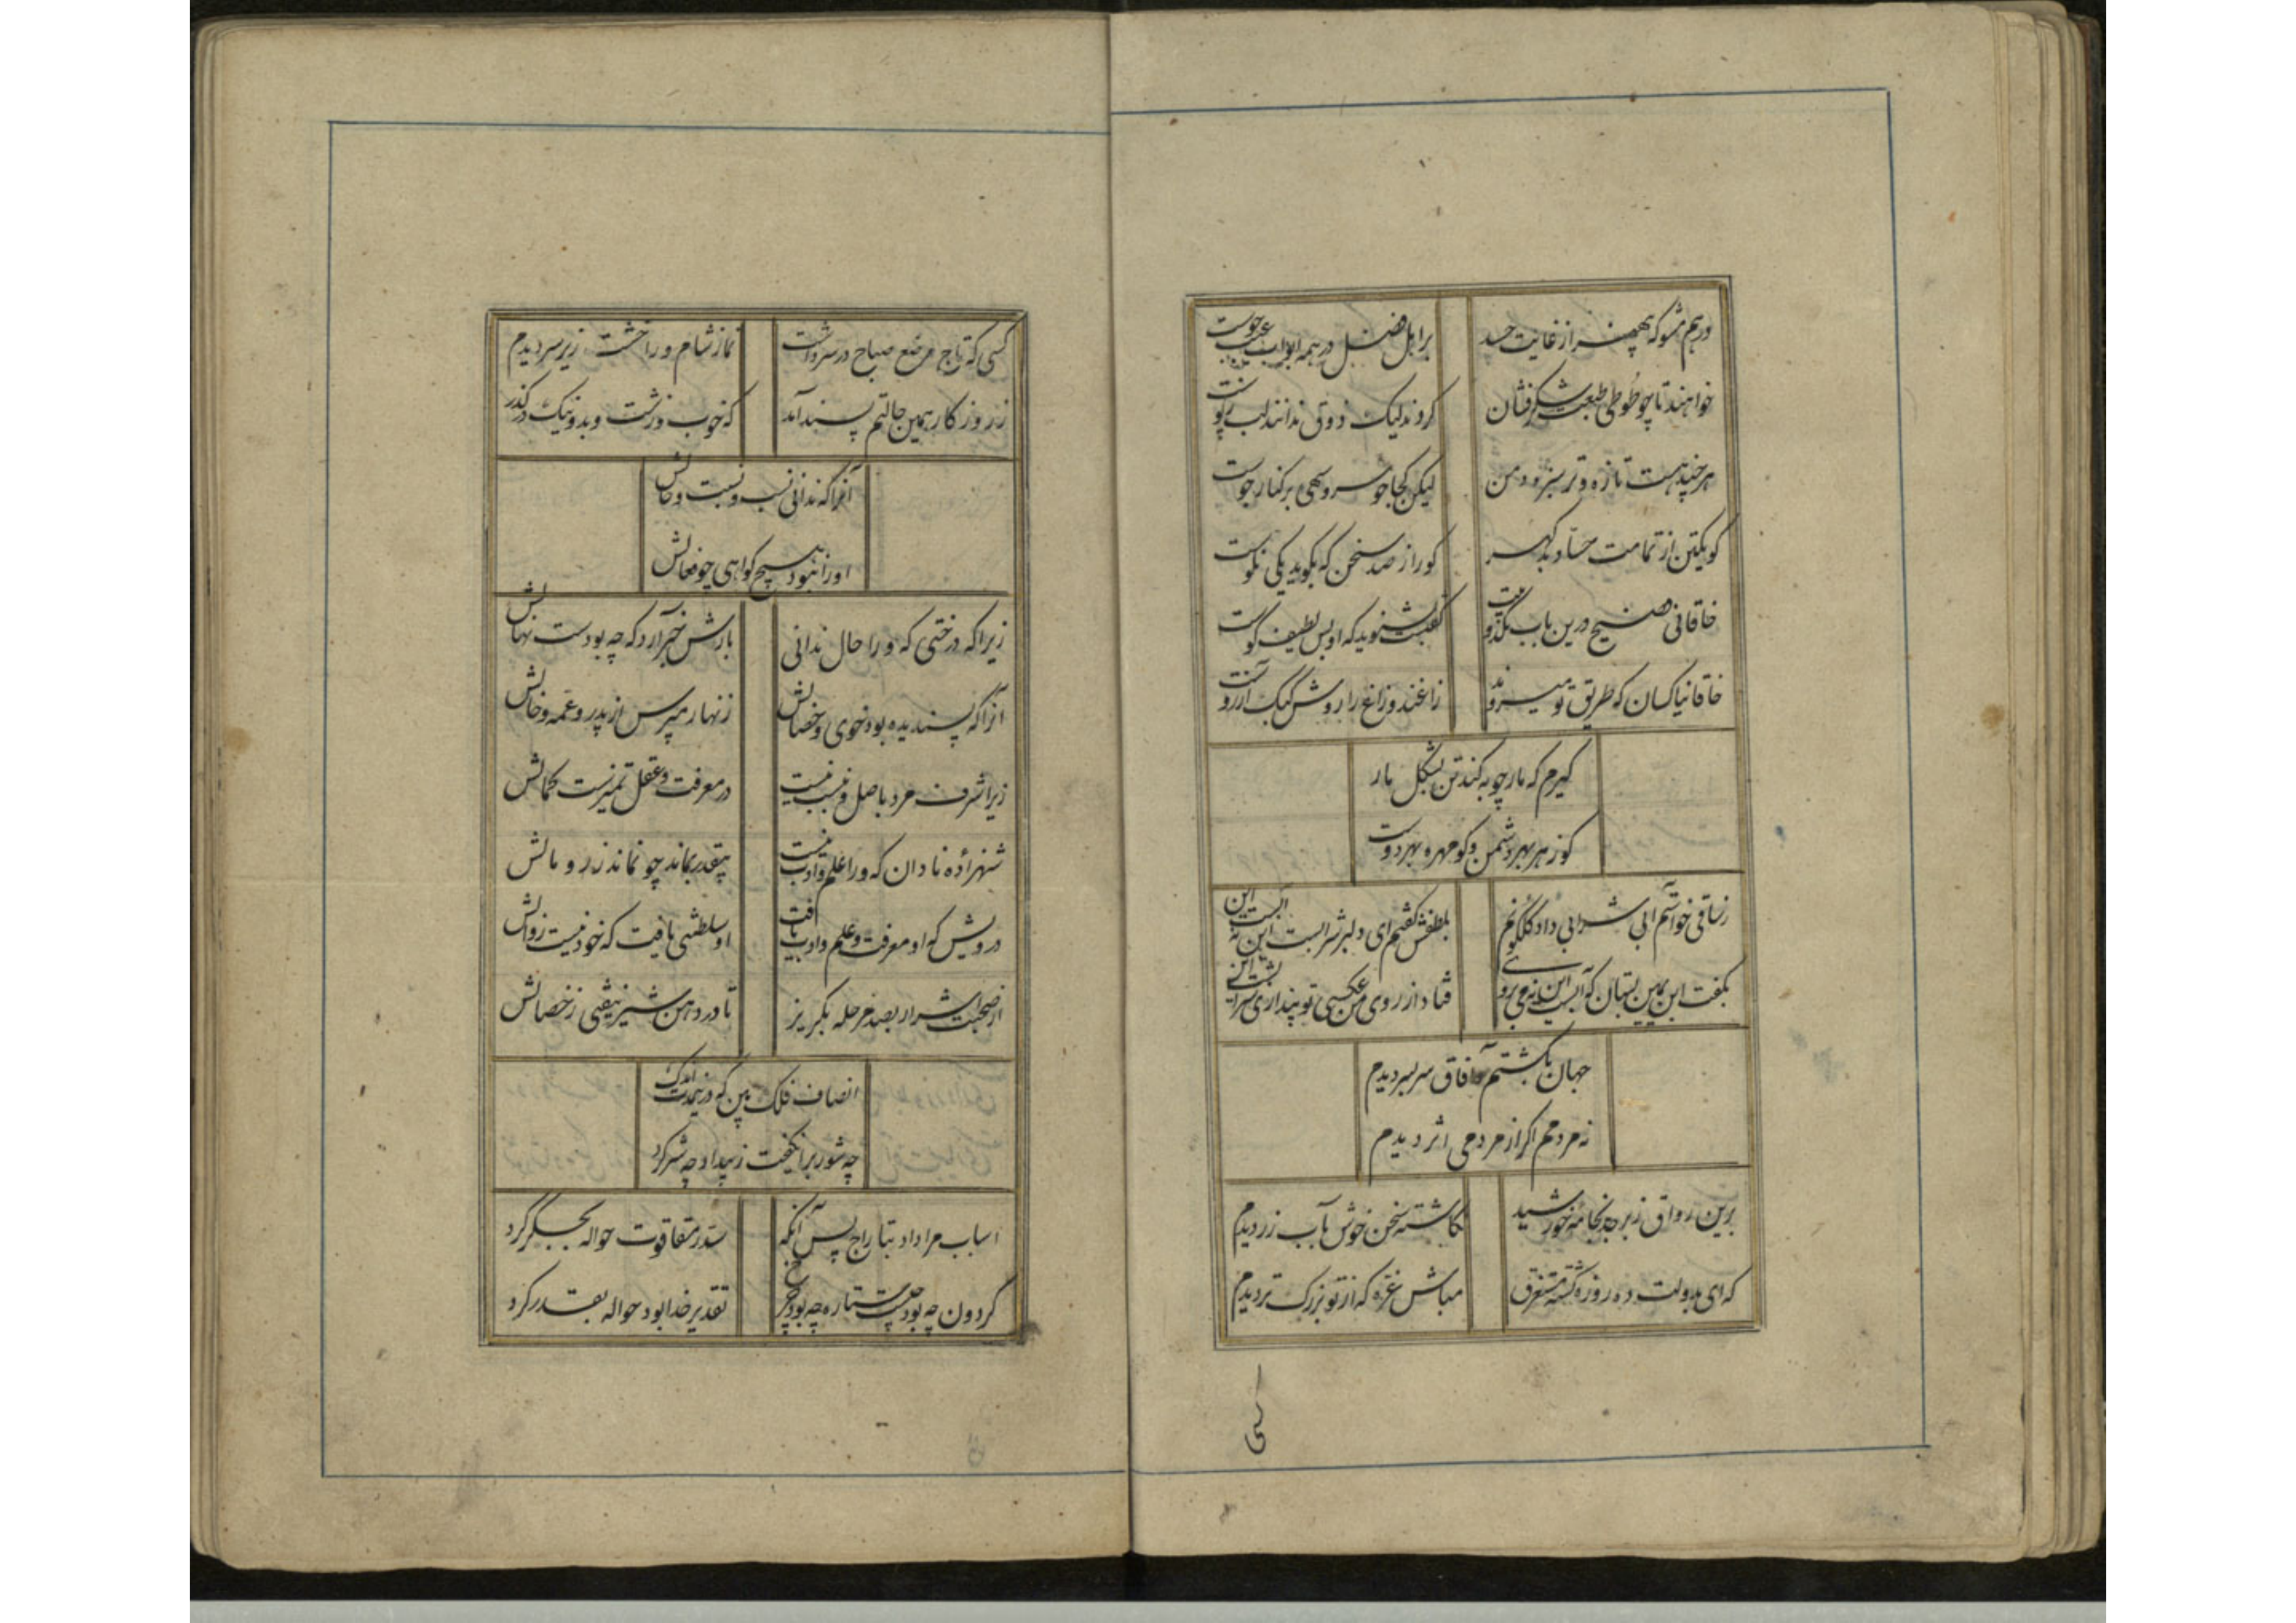 درهم مشو که بی‌هنر از غایت حسد
بر اهل فضل در همه ابواب عیب جوست
خواهند تا چو طوطی طبعت شکرفشان
کردند لیک ذوق ندانند لب
هر چند هست تازه و تر سبزه دمن
لیکن کجا چو سرو سهی بر کنار جوست
کو یکتن از تمامت حساد بدگهر
کو را ز صد سخن که بگوید یکی نکوست
خاقانی فصیح درین باب
گفتست بشنوید که او بس لطیف گوست
خاقانیا کسان که طریق تو میروند
زاغند و زاغ را روش کبک آرزوست
گیرم که مارچوبه کند تن بشکل مار
کو زهر بهر دشمن و کو مهره بهر دوست
ز ساقی خواستم آبی شرابی داد گلگونم
بلطفش گفتم ای دلبر شرابست این نه آبست این
بگفت ابن یمین بستان که آبست این نه می
فتاد از روی من عکسی تو پنداری شرابست این
جهان بگشتم و آفاق سر بسر دیدم
نه مردمم اگر از مردمی اثر دیدم
برین رواق زبرجد بخامه خورشید
نگاشته سخن خوش بآب زر دیدم
که ای بدولت ده روزه گشته مستغرق
مباش غره که از تو بزرگ تر دیدم
سی
کسی که تاج مرصع صباح در سر داشت
نماز شام ورا خشت زیر سر دیدم
ز روزکار همین حالتم پسند آمد
که خوب و زشت و بد و نیک در گذر
آنرا که ندانی نسب و نسبت و حالش
او را نبود هیچ گواهی چو فعالش
زیرا که درختی که ورا حال ندانی
بارش خبر آرد که چه بودست نهالش
آنرا که پسندیده بود خوی و خصالش
زنهار مپرس از پدر و عمه و خالش
زیرا شرف مرد باصل و نسب نیست
در معرفت و عقل و تمیزست کمالش
شهزاده نادان که ورا علم و ادب نیست
بیقدر بماند چو نماند زر و مالش
درویش که او معرفت و علم و ادب یافت
او سلطنتی یافت که خود نیست زوالش
از صحبت اشرار بصد مرحله بگریز
تا در دهن شیر نیفتی ز خصالش
انصاف فلک بین که درین مدت اندک
چه شور برانگیخت ز بیداد چه شر کرد
اسباب مرا داد بتاراج پس آنگه
سد رمقا قوت حواله بجگر کرد
گردون چه بود چیست ستاره چه بود چرخ
تقدیر خدا بود حواله بقدر کرد